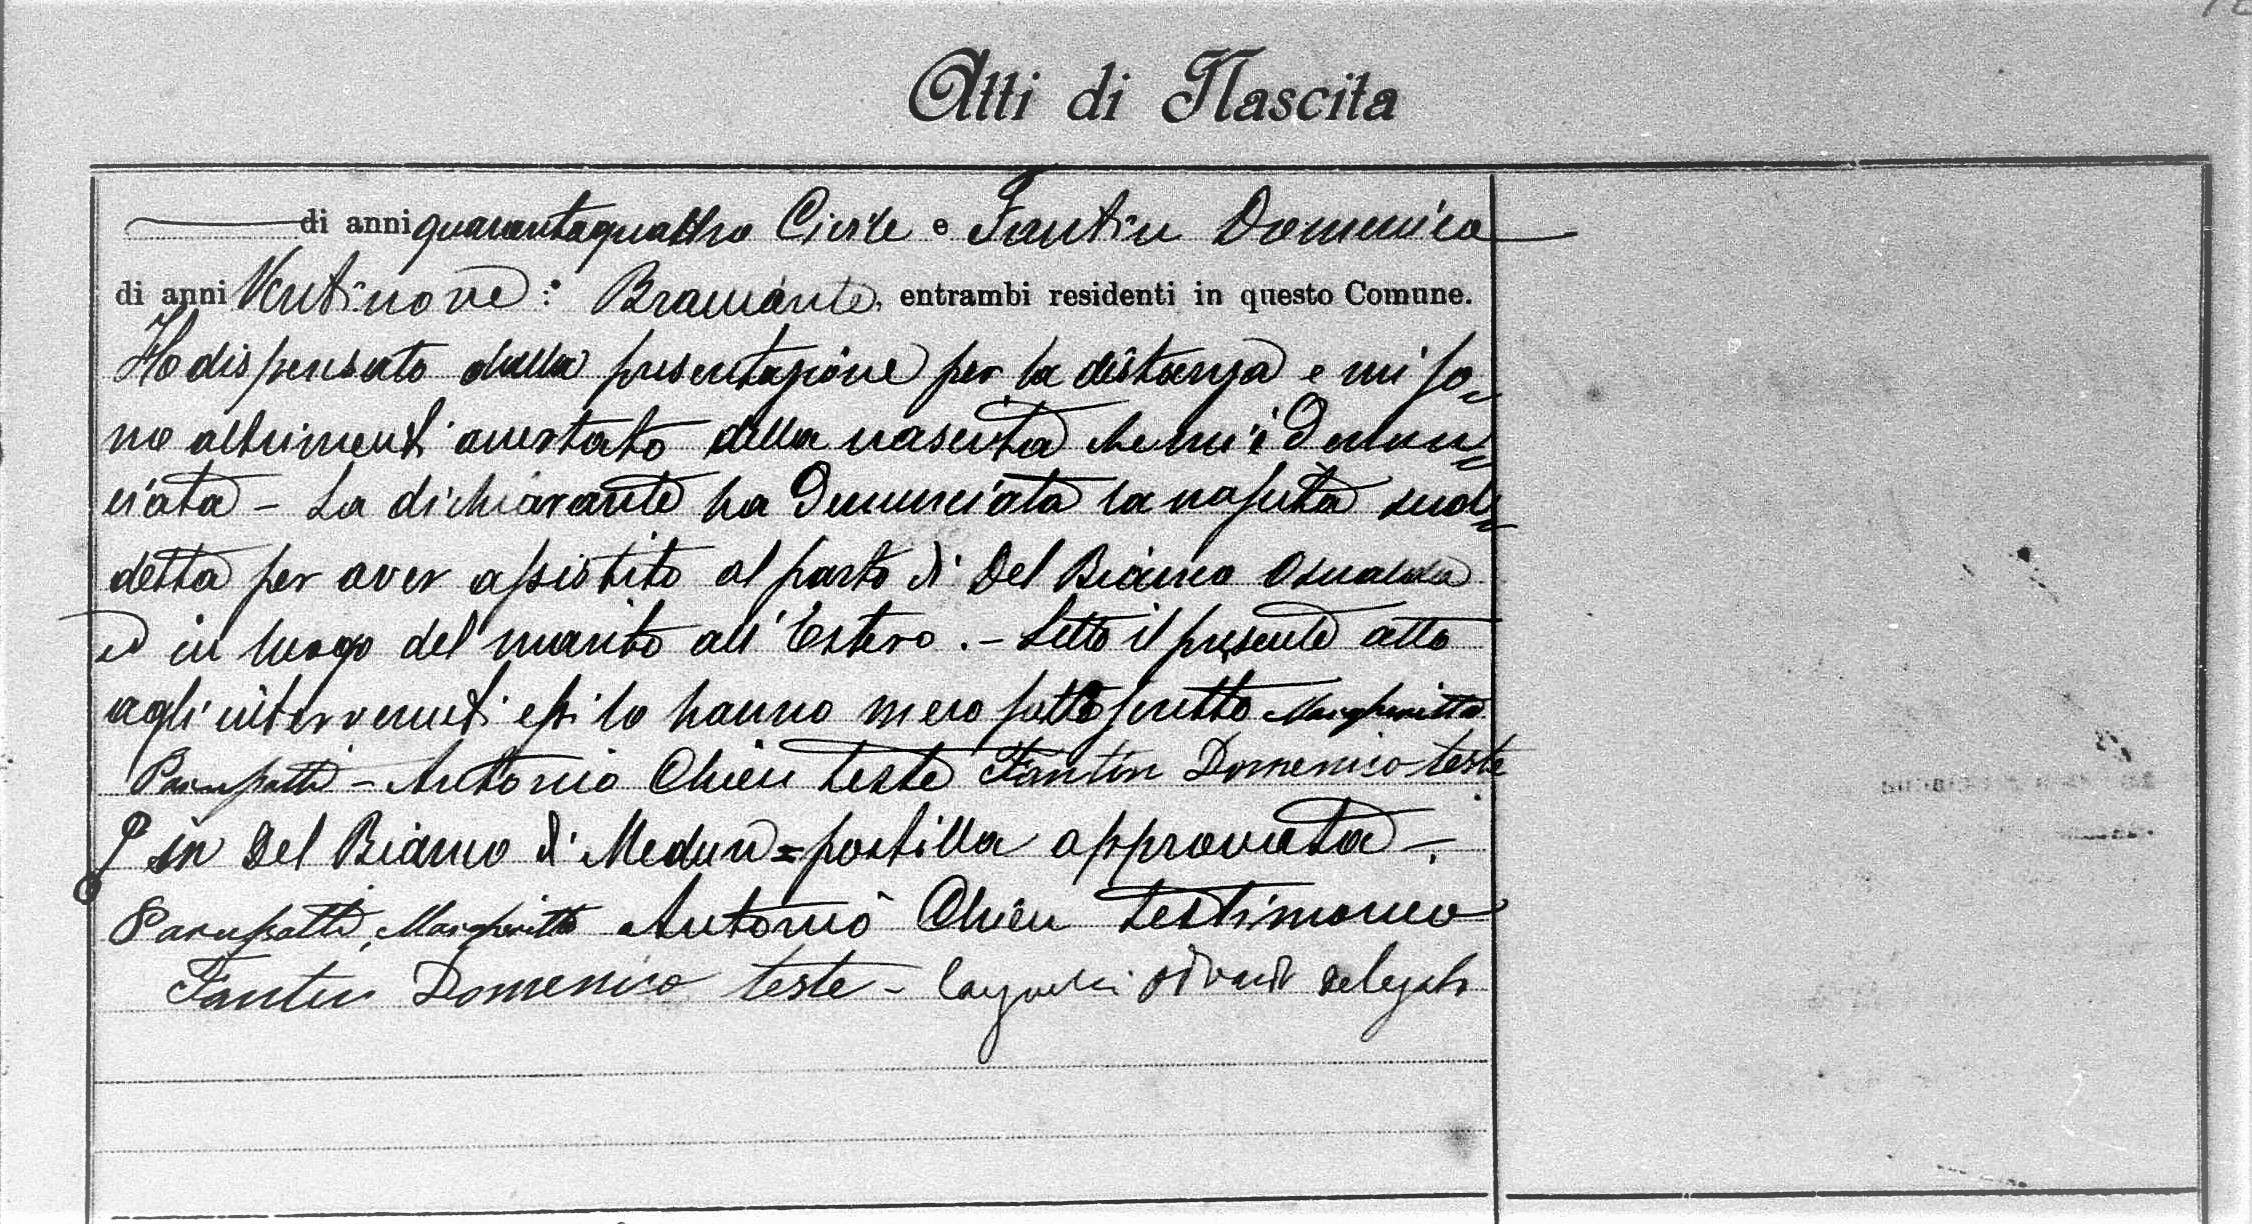 Atti di Nascita
di anni quarantaquattro Civile e Fantin Domenico
di anni Ventinove : Bramante, entrambi residenti in questo Comune.
Ho dispensato dalla presentazione per la distanza e mi so=
no altrimenti accertato della nascita che mi è denun=
ciata - La dichiarante ha denunciata la nascita sud=
detta per aver assistito al parto di Del Bianco Osualda
ed in luogo del marito all'Estero. - Letto il presente atto
agli intervenuti essi lo hanno meco sottoscritto Margheritta
- Antonio Chieu teste Fantin Domenico teste
in Del Bianco di Medun = postilla approvata -
Margheritta Antonio Chieu testimonio
Fantin Domenico teste - delegato